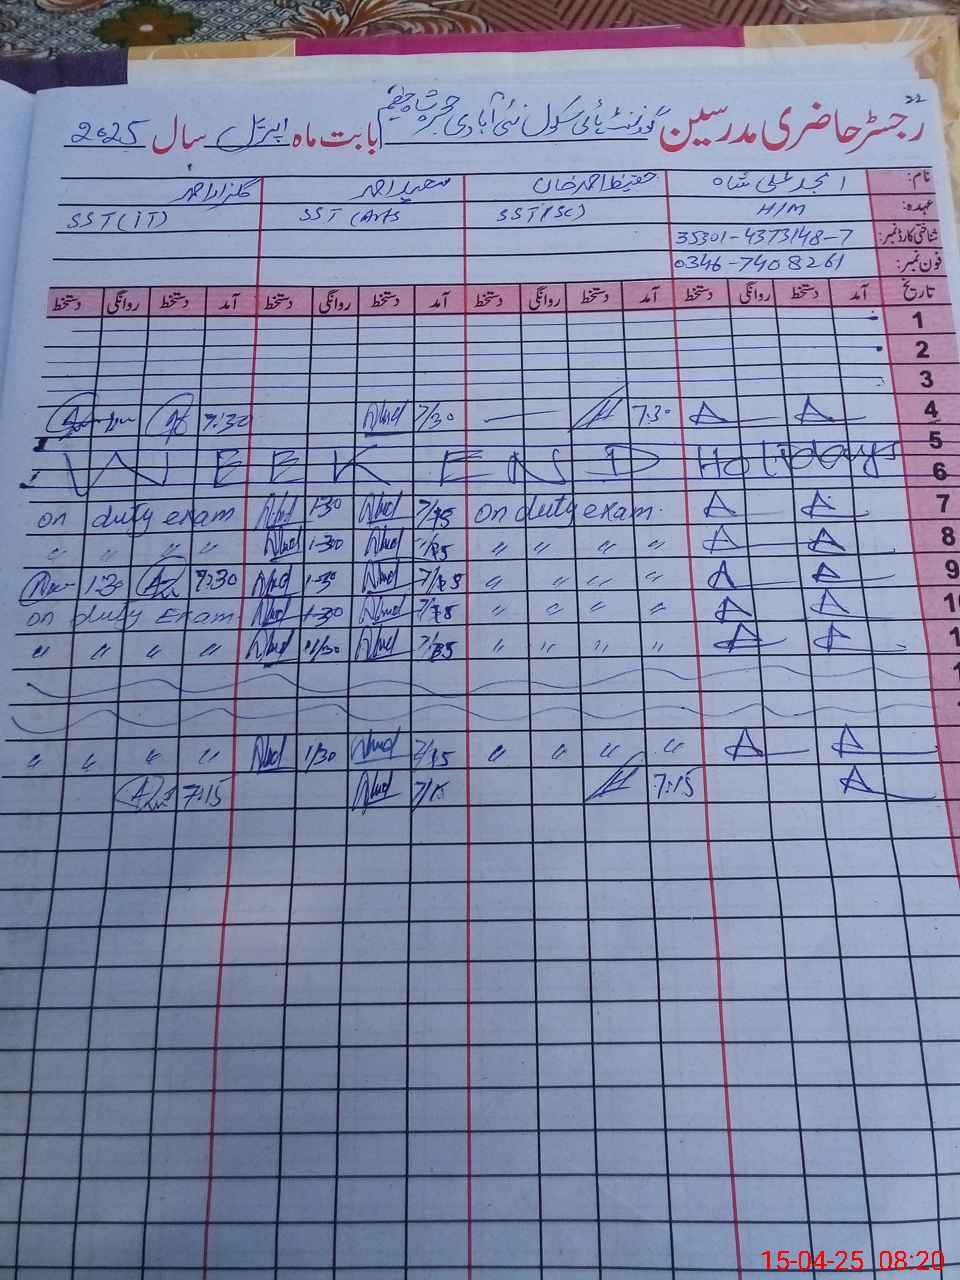 ۲۲
رجسٹر حاضری مدرسین گورنمنٹ ہائی سکول نئی آبادی حجرہ شاہ مقیم بابت ماہ اپریل سال 2025
نام: امجد علی شاہ حفیظ احمد خان سعید احمد گلزار احمد
عہدہ: H/M SST(SC) SST (Arts SST(IT)
شناختی کارڈ نمبر: 35301-4373148-7
فون نمبر: 0346-7408261
تاریخ آمد دستخط روانگی دستخط آمد دستخط روانگی دستخط آمد دستخط روانگی دستخط آمد دستخط روانگی دستخط
1
2
3
7:30 7/30 7:30 4
5
WEEK END Holidays 6
on duty exam 1-30 7/15 on duty exam. 7
" " " " 1-30 " " " " 8
1-30 7:30 1-30 " " " " 9
on duty Exam 1-30 " " " "
" " " " 1/30 " " " "
" " " " 1/30 7/15 " " " "
7:15 7/15 7:15
15-04-25 08:20